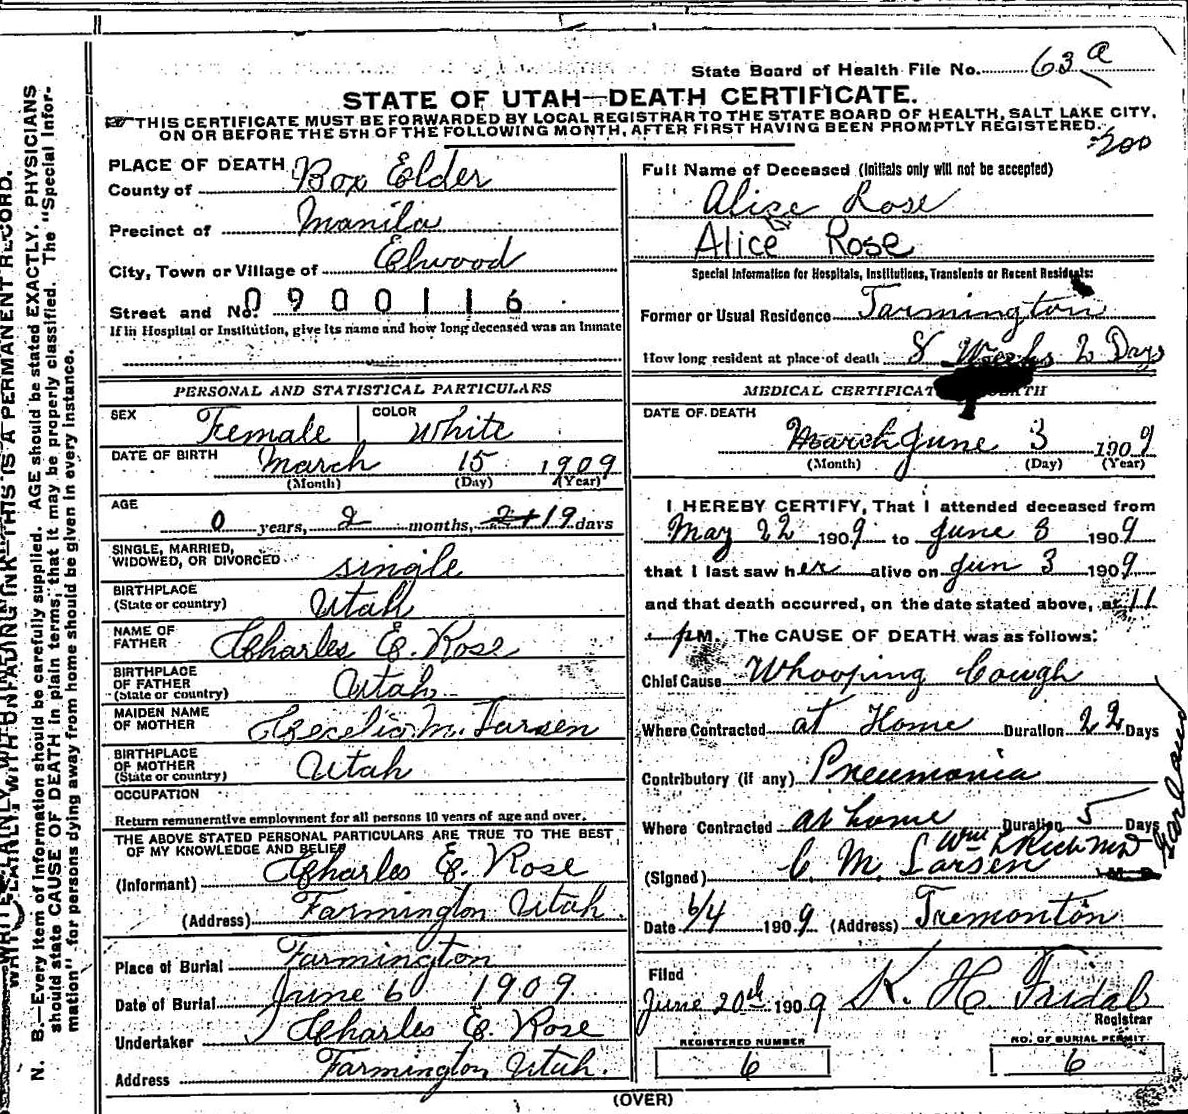 State Board of Health File No. 63 a
STATE OF UTAH—DEATH CERTIFICATE.
THIS CERTIFICATE MUST BE FORWARDED BY LOCAL REGISTRAR TO THE STATE BOARD OF HEALTH, SALT LAKE CITY,
ON OR BEFORE THE 5TH OF THE FOLLOWING MONTH, AFTER FIRST HAVING BEEN PROMPTLY REGISTERED.
200
PLACE OF DEATH
County of Box Elder
Precinct of Manila
City, Town or Village of Elwood
Street and No. 0900116
If in Hospital or Institution, give its name and how long deceased was an Inmate
PERSONAL AND STATISTICAL PARTICULARS
SEX Female COLOR White
DATE OF BIRTH March 15 1909
(Month) (Day) (Year)
AGE 0 years, 2 months, 21 19 days
SINGLE, MARRIED,
WIDOWED, OR DIVORCED single
BIRTHPLACE
(State or country) Utah
NAME OF
FATHER Charles E. Rose
BIRTHPLACE
OF FATHER
(State or country) Utah
MAIDEN NAME
OF MOTHER Cecelia M. Larsen
BIRTHPLACE
OF MOTHER
(State or country) Utah
OCCUPATION
Return remunerative employment for all persons 10 years of age and over.
THE ABOVE STATED PERSONAL PARTICULARS ARE TRUE TO THE BEST
OF MY KNOWLEDGE AND BELIEF
(Informant) Charles E. Rose
(Address) Farmington Utah.
Place of Burial Farmington
Date of Burial June 6 1909
Undertaker Charles E. Rose
Address Farmington Utah.
Full Name of Deceased (Initials only will not be accepted)
Alice Rose
Alice Rose
Special Information for Hospitals, Institutions, Transients or Recent Residents:
Former or Usual Residence Farmington
How long resident at place of death 8 Weeks 2 Days
MEDICAL CERTIFICAT TH
DATE OF DEATH
March June 3 1909
(Month) (Day) (Year)
I HEREBY CERTIFY, That I attended deceased from
May 22 1909 to June 3 1909
that I last saw her alive on Jun 3 1909
and that death occurred, on the date stated above, at 11
PM. The CAUSE OF DEATH was as follows:
Chief Cause Whooping Cough
Where Contracted at Home Duration 22 Days
Contributory (if any) Pneumonia
Where Contracted at home Duration 5 Days
Wm
(Signed) C. M. Larsen M D
Garland
Date 6/4 1909 (Address) Tremonton
Filed
June 20th 1909 K. H. Fridal
Registrar
REGISTERED NUMBER
6
NO. OF BURIAL PERMIT
6
(OVER)
WRITE PLAINLY WITH UNFADING INK—THIS IS A PERMANENT RECORD.
N. B.—Every item of information should be carefully supplied. AGE should be stated EXACTLY. PHYSICIANS
should state CAUSE OF DEATH in plain terms, that it may be properly classified. The "Special Infor-
mation" for persons dying away from home should be given in every instance.